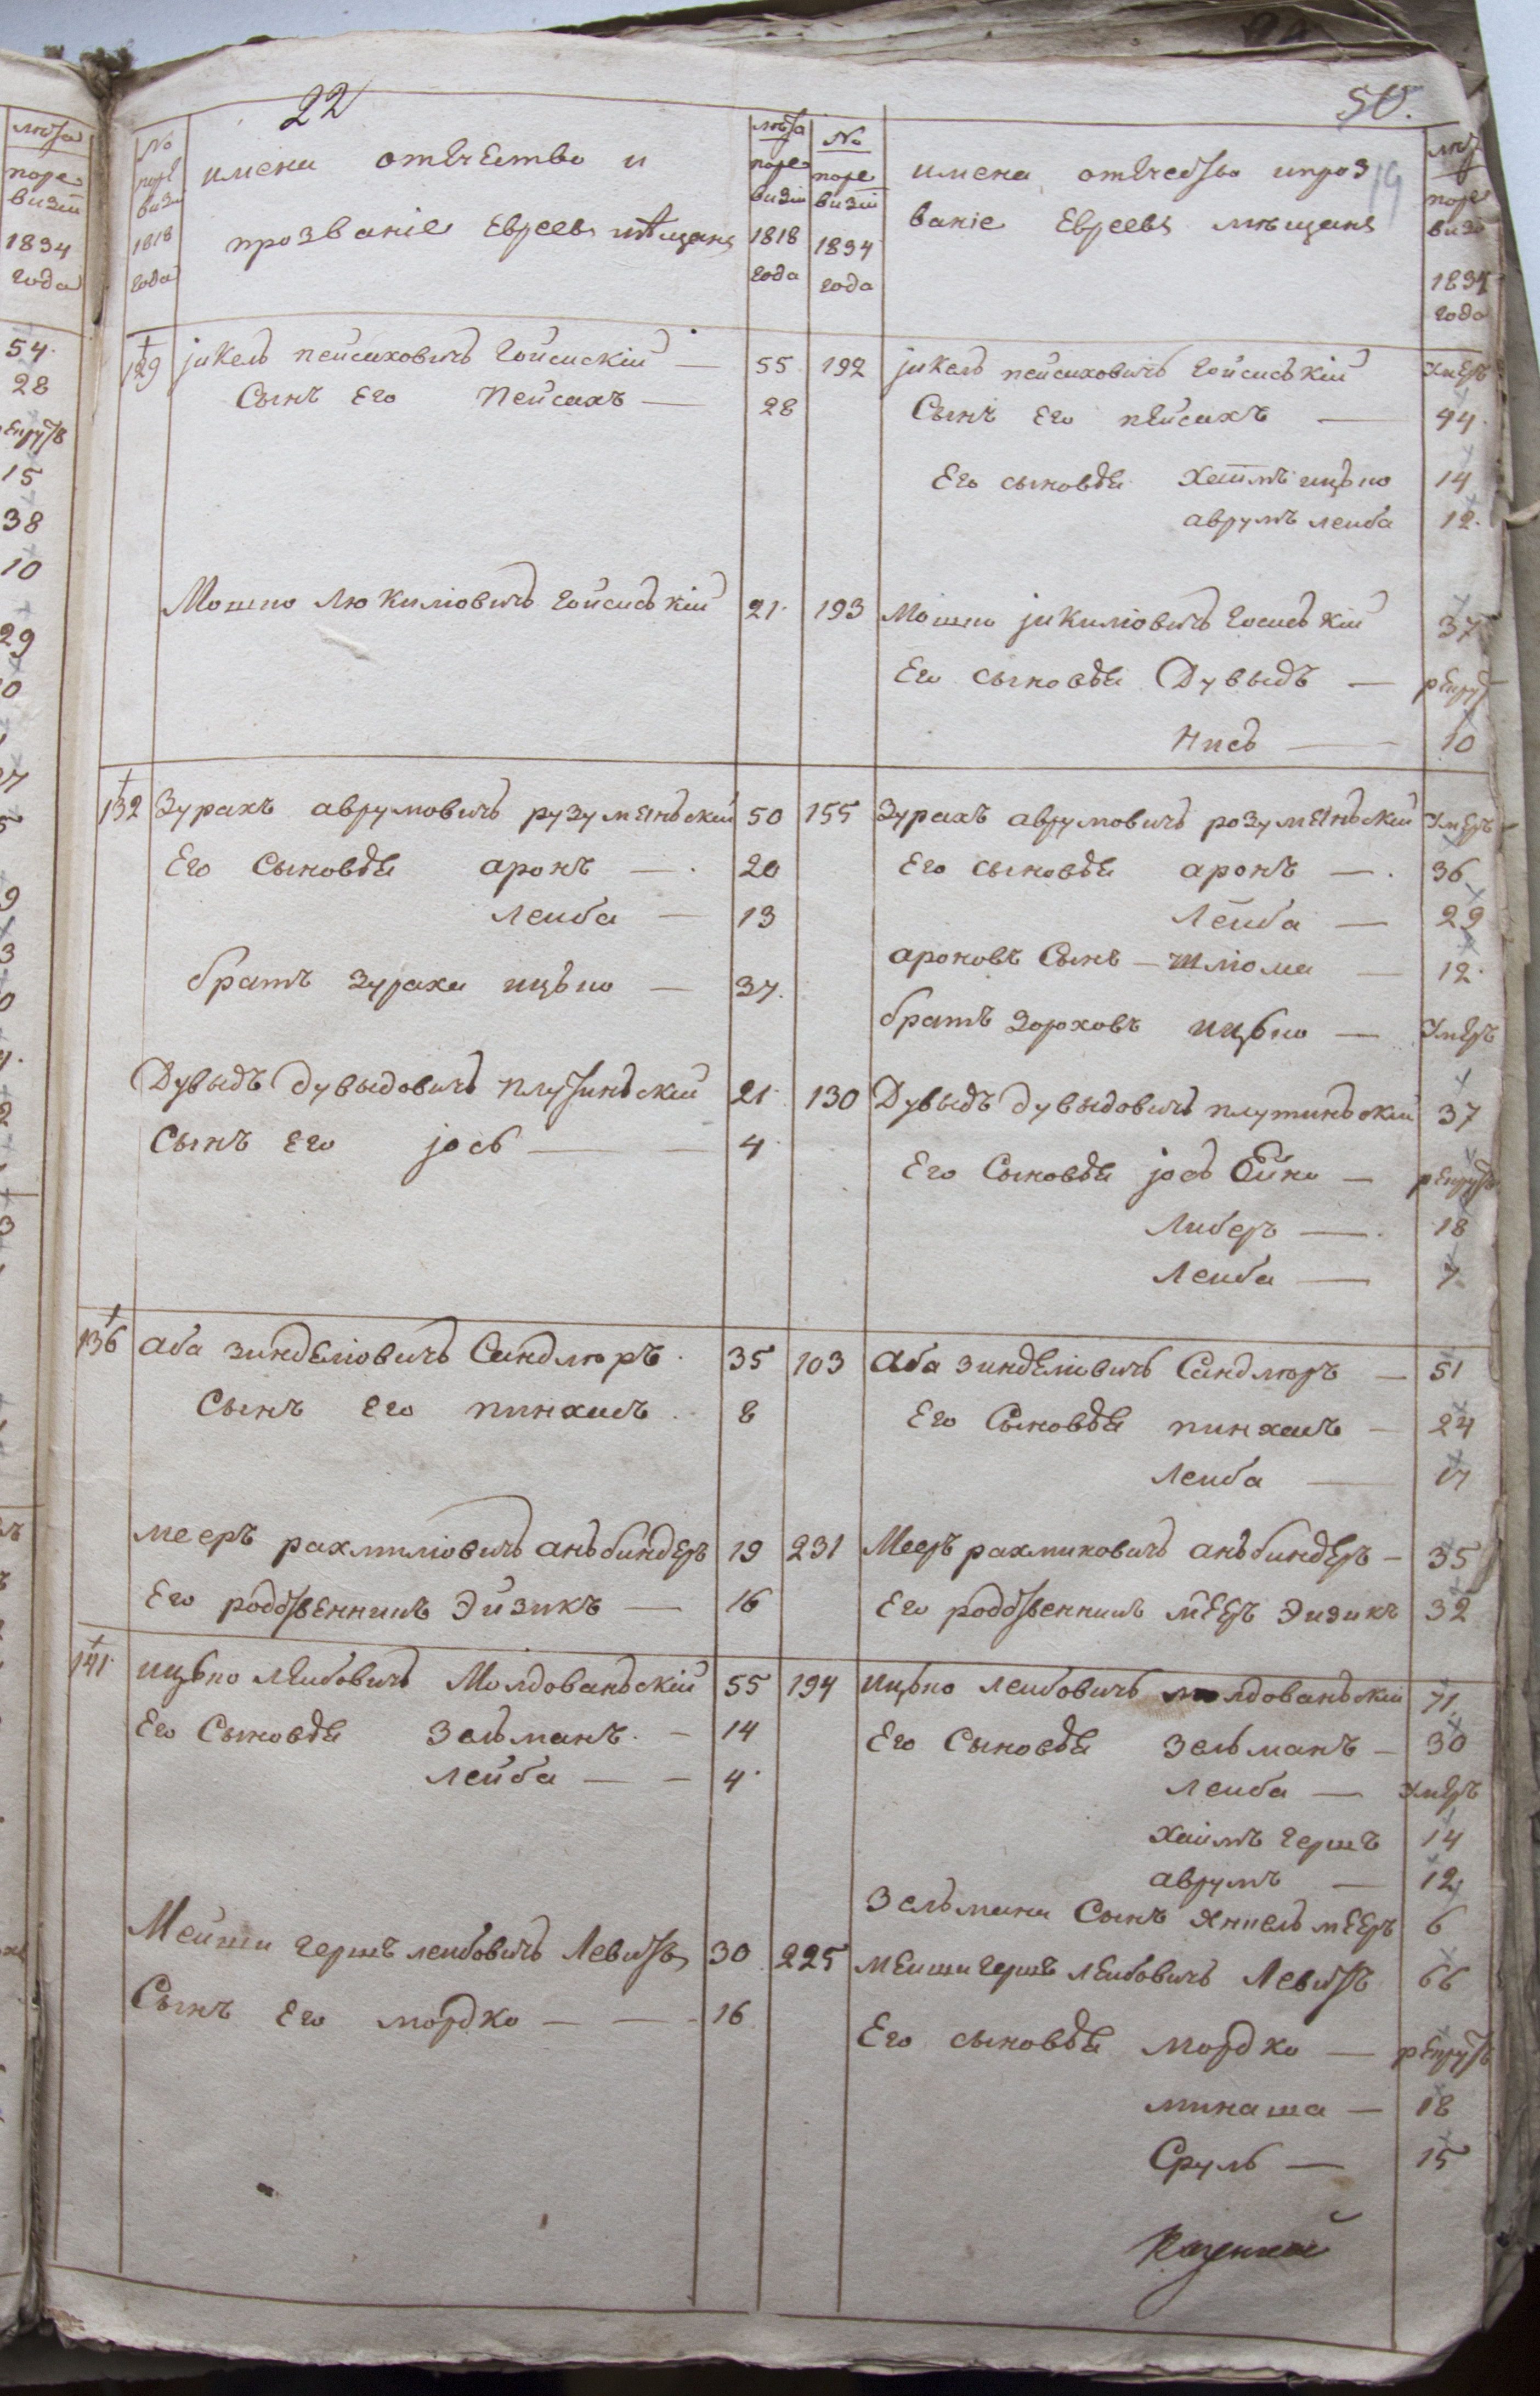 22
50.
19
№ поре визіи 1818 года
имена отечество и
прозваніе Евреевъ мѣщанъ
лѣта поре визіи 1818 года
№ поре визіи 1834 года
имена отечество и проз
ваніе Евреевъ мѣщанъ
лѣт поре визі 1834 года
лѣта
поре
визіи
1834
года
54.
28
15
38
10
29
129 јикель пейсаховичъ Гойсискій — 55 192 јикель пейсаховичъ Гойсиській умеръ
Сынъ Его Пейсахъ — 28 Сынъ Его пейсахъ — 44.
Его сыновья Хаимъ ицько 14
аврумъ леиба 12.
Мошко Люкиліовичъ Гойсиській 21. 193 Мошко јикиліовичъ Госиській 37
Его сыновья Дувыдъ — рекрутъ
Нись — 10
132 Зурахъ аврумовичъ рузуменьскій 50 155 Зурахъ аврумовичъ розуменьскій умеръ
Его Сыновья аронъ — 20 Его сыновья аронъ — 36
Леиба — 13 Лейба — 29
ароновъ Сынъ — Шліома — 12.
братъ Зураха ицько — 37. братъ Зороховъ ицько — умеръ
Дувыдъ дувыдовичъ плутиньскій 21. 130 Дувыдъ дувыдовичъ плутиньскій 37
Сынъ Его јось — 4 Его Сыновья јось — рекрутъ
Либеръ — 18
Леиба — 7
136 аба зинделіовичъ Сандлюръ. 35 103 Аба зинделіовичъ Сандлюръ — 51
Сынъ Его пинхасъ. 8 Его Сыновья пинхасъ — 24
Леиба — 17
меєръ рахмиліовичъ аньбиндеръ 19 231 Меєръ рахмиловичъ аньбиндеръ — 35
Его родственникъ Эйзикъ — 16 Его родственникъ меєръ Эизикъ 32
141 ицько леибовичъ Молдованьскій 55 194 ицько леибовичъ молдованьскій 71.
Его Сыновья Зельманъ. — 14 Его Сыновья Зельманъ — 30
лейба — 4. леиба — умеръ
хаимъ гершъ 14
аврумъ — 12
Зельмана Сынъ меєръ 6
Мейши гершъ леибовичъ Левитъ 30 225 мейши гершъ леибовичъ Левитъ 66
Сынъ Его мордко — 16 Его сыновья мордко — рекрутъ
минаша — 18
Сруль — 15